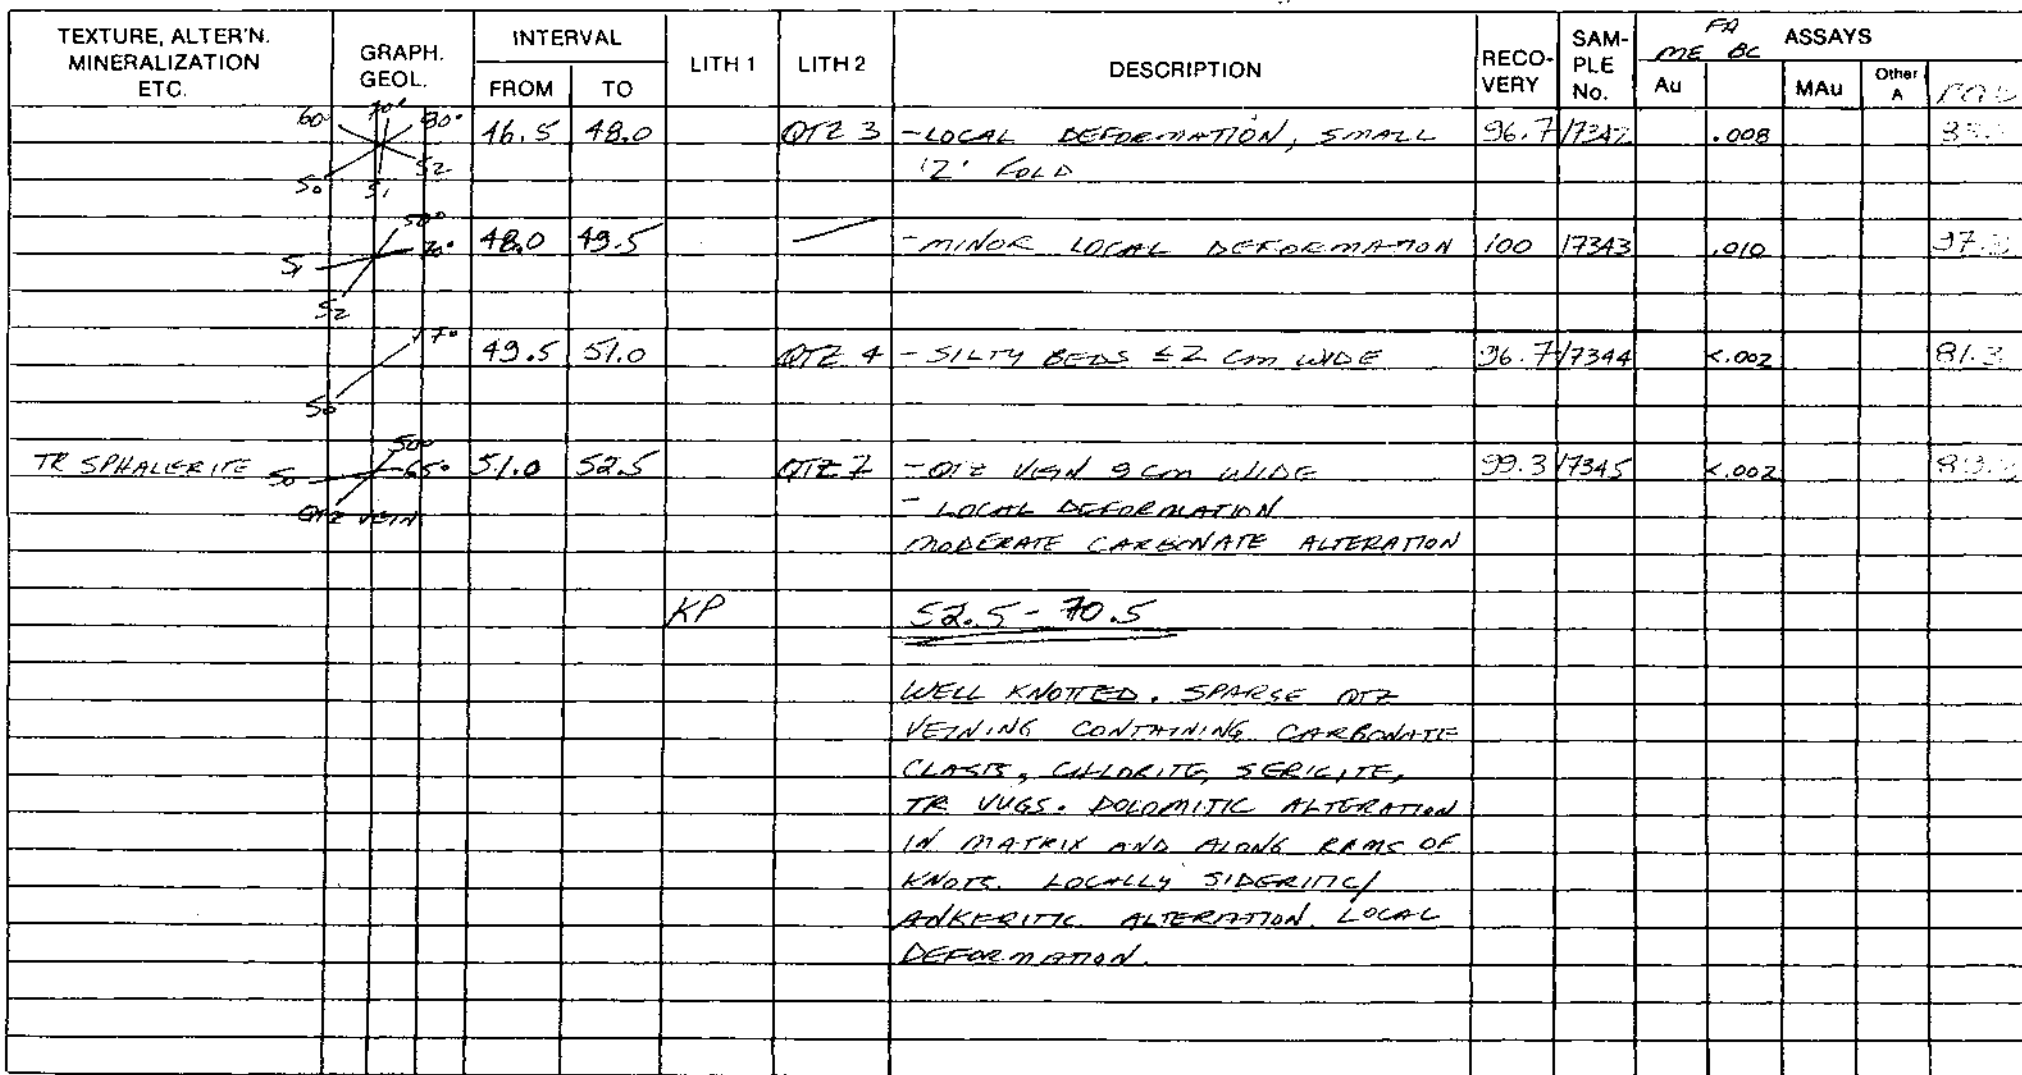 TEXTURE, ALTER'N. MINERALIZATION ETC. GRAPH. GEOL. INTERVAL FROM TO LITH 1 LITH 2 DESCRIPTION RECO-VERY SAM-PLE No. FA ME BC ASSAYS Au MAu Other A
60° 70° 80° 46.5 48.0 QTZ 3 - LOCAL DEFORMATION, SMALL 96.7 17342 .008
S0 S1 S2 'Z' FOLD
50° 70° 48.0 49.5 - MINOR LOCAL DEFORMATION 100 17343 .010
S1 S2
17° 49.5 51.0 QTZ 4 - SILTY BEDS ≤2 cm WIDE 96.7 17344 <.002 81.3
S0
TR SPHALERITE S0 50° 65° 51.0 52.5 QTZ 7 - QTZ VEIN 9 cm WIDE 99.3 17345 <.002
QTZ VEIN - LOCAL DEFORMATION
MODERATE CARBONATE ALTERATION
KP 52.5 - 70.5
WELL KNOTTED. SPARSE QTZ
VEINING CONTAINING CARBONATE
CLASTS, CHLORITE, SERICITE,
TR VUGS. DOLOMITIC ALTERATION
IN MATRIX AND ALONG RIMS OF
KNOTS. LOCALLY SIDERITIC/
ANKERITIC ALTERATION. LOCAL
DEFORMATION.